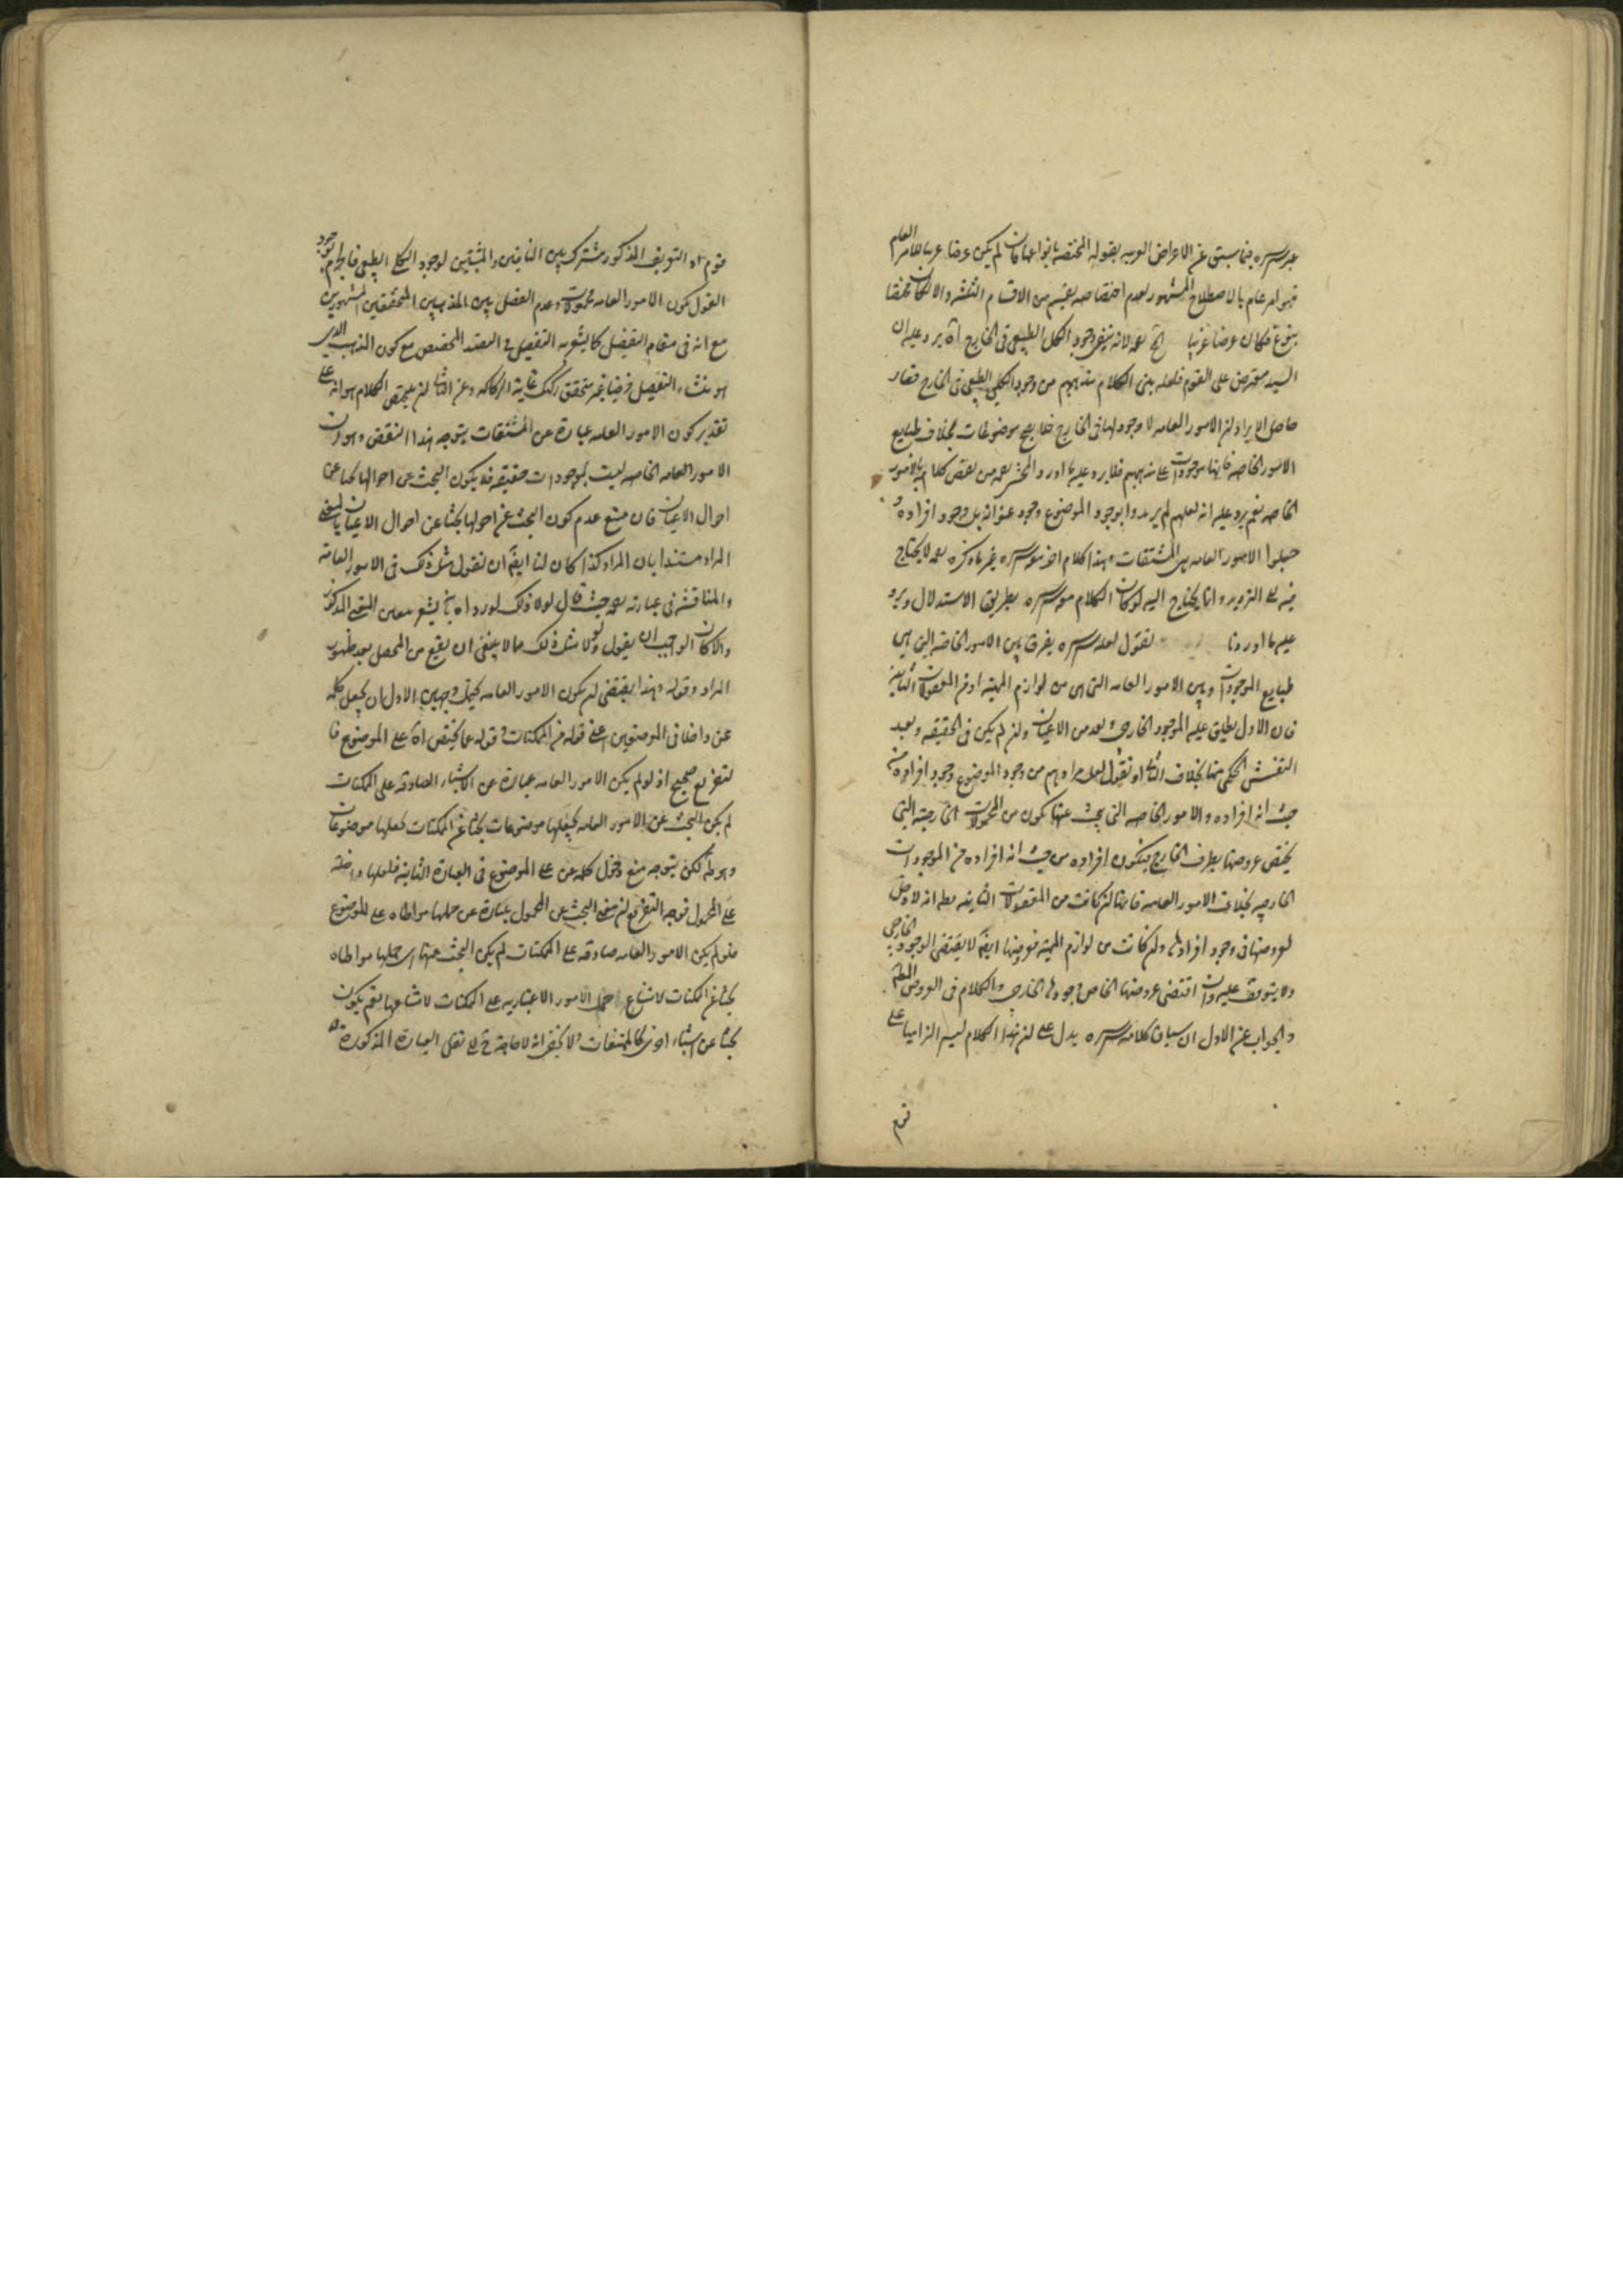 قدس سره فيما سبق عن الاعراض الغريبه بقوله المختصة بانواعها فان لم يكن عرضا غريبا للامر العام
فهو امر عام بالاصطلاح المشهور لعدم اختصاصه بقسم من الاقسام الثلثة والا لكان مختصا
بنوع فكان عرضا غريبا لانه ينفى وجود الكلى الطبيعى فى الخارج اه يرد عليه ان
السيد معترض على القوم فلعله بنى الكلام مذهبهم من وجود الكلى الطبيعى فى الخارج فصار
حاصل الايراد ان الامور العامه لا وجود لها فى الخارج موضوعات بخلاف طبايع
الامور الخاصه فانها موجودات على مذهبهم فلا يرد عليه ما اورد المحشى من نقض كلامه بالامور
الخاصه نعم يرد عليه انه لعلهم لم يريدوا بوجود الموضوع وجود عنوانه بل وجود افراده و
جعلوا الامور العامه هى المشتقات وهذا كلام اخر سره غير ما ذكره لا يحتاج
فيه الى الترديد وانما يحتاج اليه لو كان الكلام سره بطريق الاستدلال ويرد
عليه ما اوردنا لعله سره يفرق بين الامور الخاصة التى هى
طبايع الموجودات وبين الامور العامه التى هى من لوازم المهية او من المعقولات الثانية
فان الاول يطلق عليه الموجود الخارجى ويعد من الاعيان وان لم يكن فى الحقيقه ويعد
التفتيش الحكمى بخلاف الثانى او نقول لعل مرادهم من وجود الموضوع وجود افراده من
حيث انه افراده والامور الخاصه التى يبحث عنها يكون من المحمولات الخارجية التى
يختص عروضها بظرف الخارج فيكون افراده من حيث انه افراده من الموجودات
الخارجيه بخلاف الامور العامه فانها ان كانت من المعقولات الثانيه انه لا دخل
لعروضها فى وجود افرادها وان كانت من لوازم المهية فعروضها ايضا لا يقتضى الوجود الخارجى
ولا يتوقف عليه وان اقتضى عروضها الخاص وجودها الخارجى والكلام فى العروض المطلق
والجواب عن الاول ان سياق كلامه سره يدل على ان هذا الكلام ليس الزاميا على
قوم
قوم اذ التعريف المذكور مشترك بين النافين والمثبتين لوجود الكلى الطبيعى
القول بكون الامور العامه محمولات وعدم الفصل بين المذهبين المحققين المشهورين
مع انه فى مقام التفصيل كما يشعر به التفصيل فى المخصص مع كون المذهب الذى
هو منشاء التفصيل فرضيا غير متحقق ركيك غاية الركاكه وعن الثانى ان الكلام هو انه على
تقدير كون الامور العامه عبارة عن المشتقات يتوجه هذا النقض وهو ان
الامور العامه الخاصه ليست بموجودات حقيقه فلا يكون البحث عن احوالها بحثا عن
احوال الاعيان فان منع عدم كون البحث عن احوالها بحثا عن احوال الاعيان بالمعنى
المراد مستندا بان المراد كذا كان لنا ايضا ان نقول مثل ذلك فى الامور العامة
والمناقشه فى عبارته حيث قال لولا ذلك لورد اه المذكور
والا كان الواجب ان يقول ولولا مثل ذلك مما لا ينبغى ان يقع من المحصل بعد ظهور
المراد وقوله وهذا يقتضى ان يكون الامور العامه يحتمل وجهين الاول ان يجعل كلمه
عن داخلا فى الموضعين اعنى قوله عن الممكنات وقوله عما يختص اه على الموضوع فا
لتفريع صحيح اذ لو لم يكن الامور العامه عبارة عن الاشياء الصادقه على الممكنات
لم يكن البحث عن الامور العامه بجعلها موضوعات بحثا عن الممكنات بجعلها موضوعات
وهو ظ لكن يتوجه منع دخول كلمه عن على الموضوع فى العبارة الثانيه فلعلها داخلة
على المحمول فوجه التفريع ان معنى البحث عن المحمول عبارة عن حملها مواطاه على الموضوع
فلو لم يكن الامور العامه صادقه على الممكنات لم يكن البحث عنها اى حملها مواطاه
بحثا عن الممكنات لامتناع حمل الامور الاعتباريه على الممكنات لامتناعها نعم يكون
بحثا عن اشياء اخرى كالممتنعات ولا يخفى انه لا حاجة الى نقل العبارة المذكورة